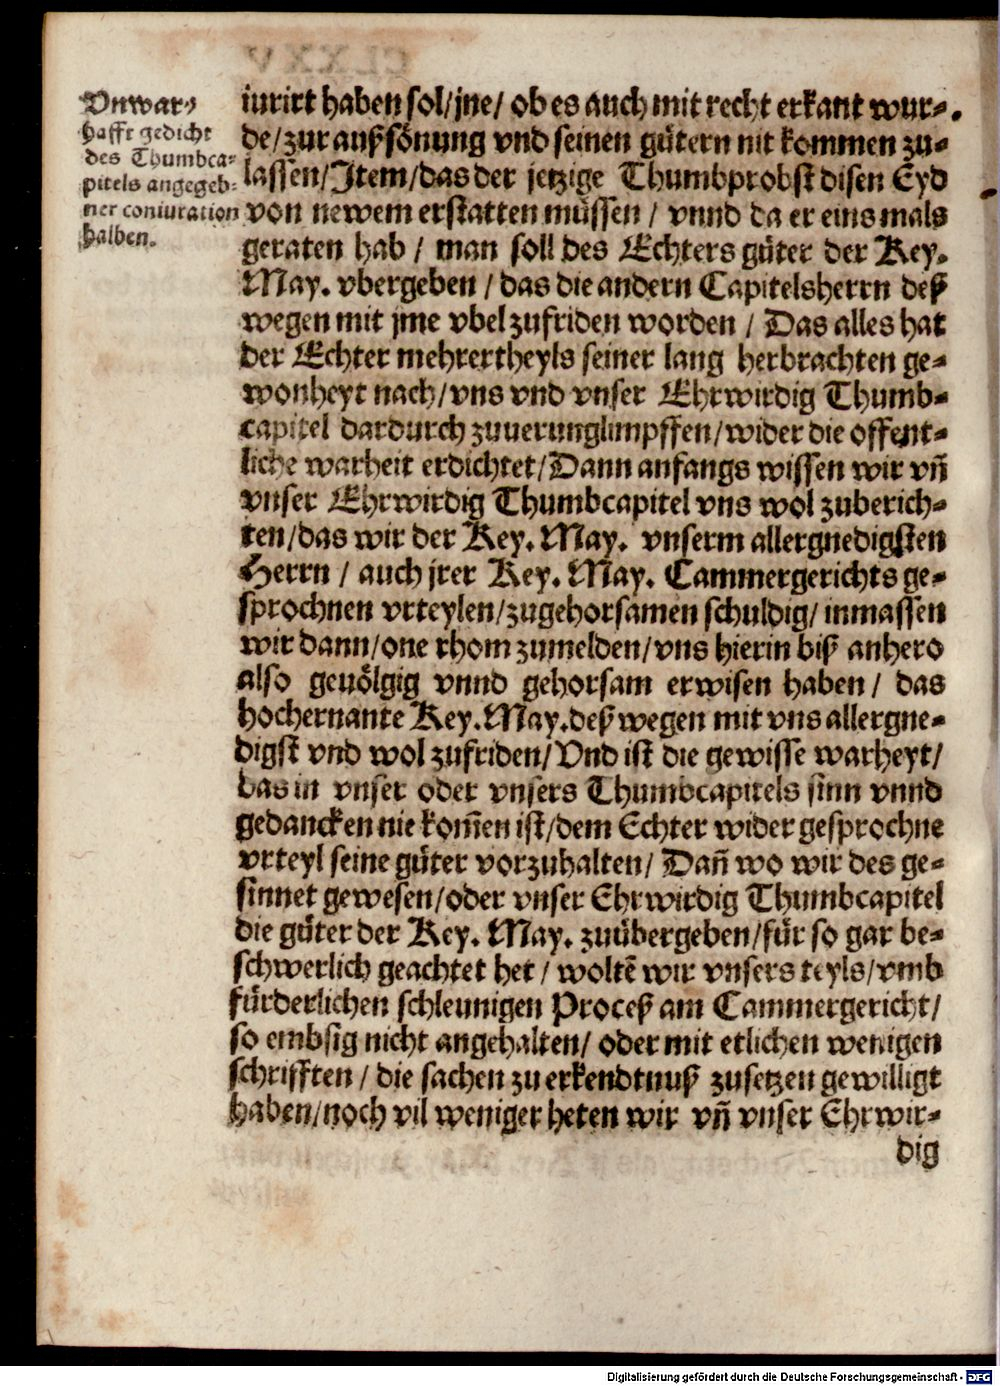 Vnwar-
hafft gedicht
des Thumbca-
pitels angegeb-
ner coniuration
halben.
iurirt haben sol/jne/ ob es auch mit recht erkant wur-
de/zur außsönung vnd seinen gütern nit kommen zu-
lassen/Item/das der jetzige Thumbprobst disen Eyd
von newem erstatten müssen / vnnd da er eins mals
geraten hab / man soll des Echters güter der Key.
May. vbergeben / das die andern Capitelsherrn deß
wegen mit jme vbel zufriden worden / Das alles hat
der Echter mehrertheyls seiner lang herbrachten ge-
wonheyt nach/vns vnd vnser Ehrwirdig Thumb-
capitel dardurch zuuerunglimpffen/wider die offent-
liche warheit erdichtet/Dann anfangs wissen wir vñ
vnser Ehrwirdig Thumbcapitel vns wol zuberich-
ten/das wir der Key. May. vnserm allergnedigsten
Herrn / auch jrer Key. May. Cammergerichts ge-
sprochnen vrteylen/zugehorsamen schuldig/ inmassen
wir dann/one rhom zumelden/vns hierin biß anhero
also geuölgig vnnd gehorsam erwisen haben / das
hochernante Key. May. deß wegen mit vns allergne-
digst vnd wol zufriden/Vnd ist die gewisse warheyt/
das in vnser oder vnsers Thumbcapitels sinn vnnd
gedancken nie kom̃en ist/dem Echter wider gesprochne
vrteyl seine güter vorzuhalten/ Dañ wo wir des ge-
sinnet gewesen/oder vnser Ehrwirdig Thumbcapitel
die güter der Key. May. zuübergeben/für so gar be-
schwerlich geachtet het / woltẽ wir vnsers teyls/vmb
fürderlichen schleunigen Proceß am Cammergericht/
so embsig nicht angehalten/ oder mit etlichen wenigen
schrifften / die sachen zu erkendtnuß zusetzen gewilligt
haben/noch vil weniger heten wir vñ vnser Ehrwir-
dig
Digitalisierung gefördert durch die Deutsche Forschungsgemeinschaft - DFG